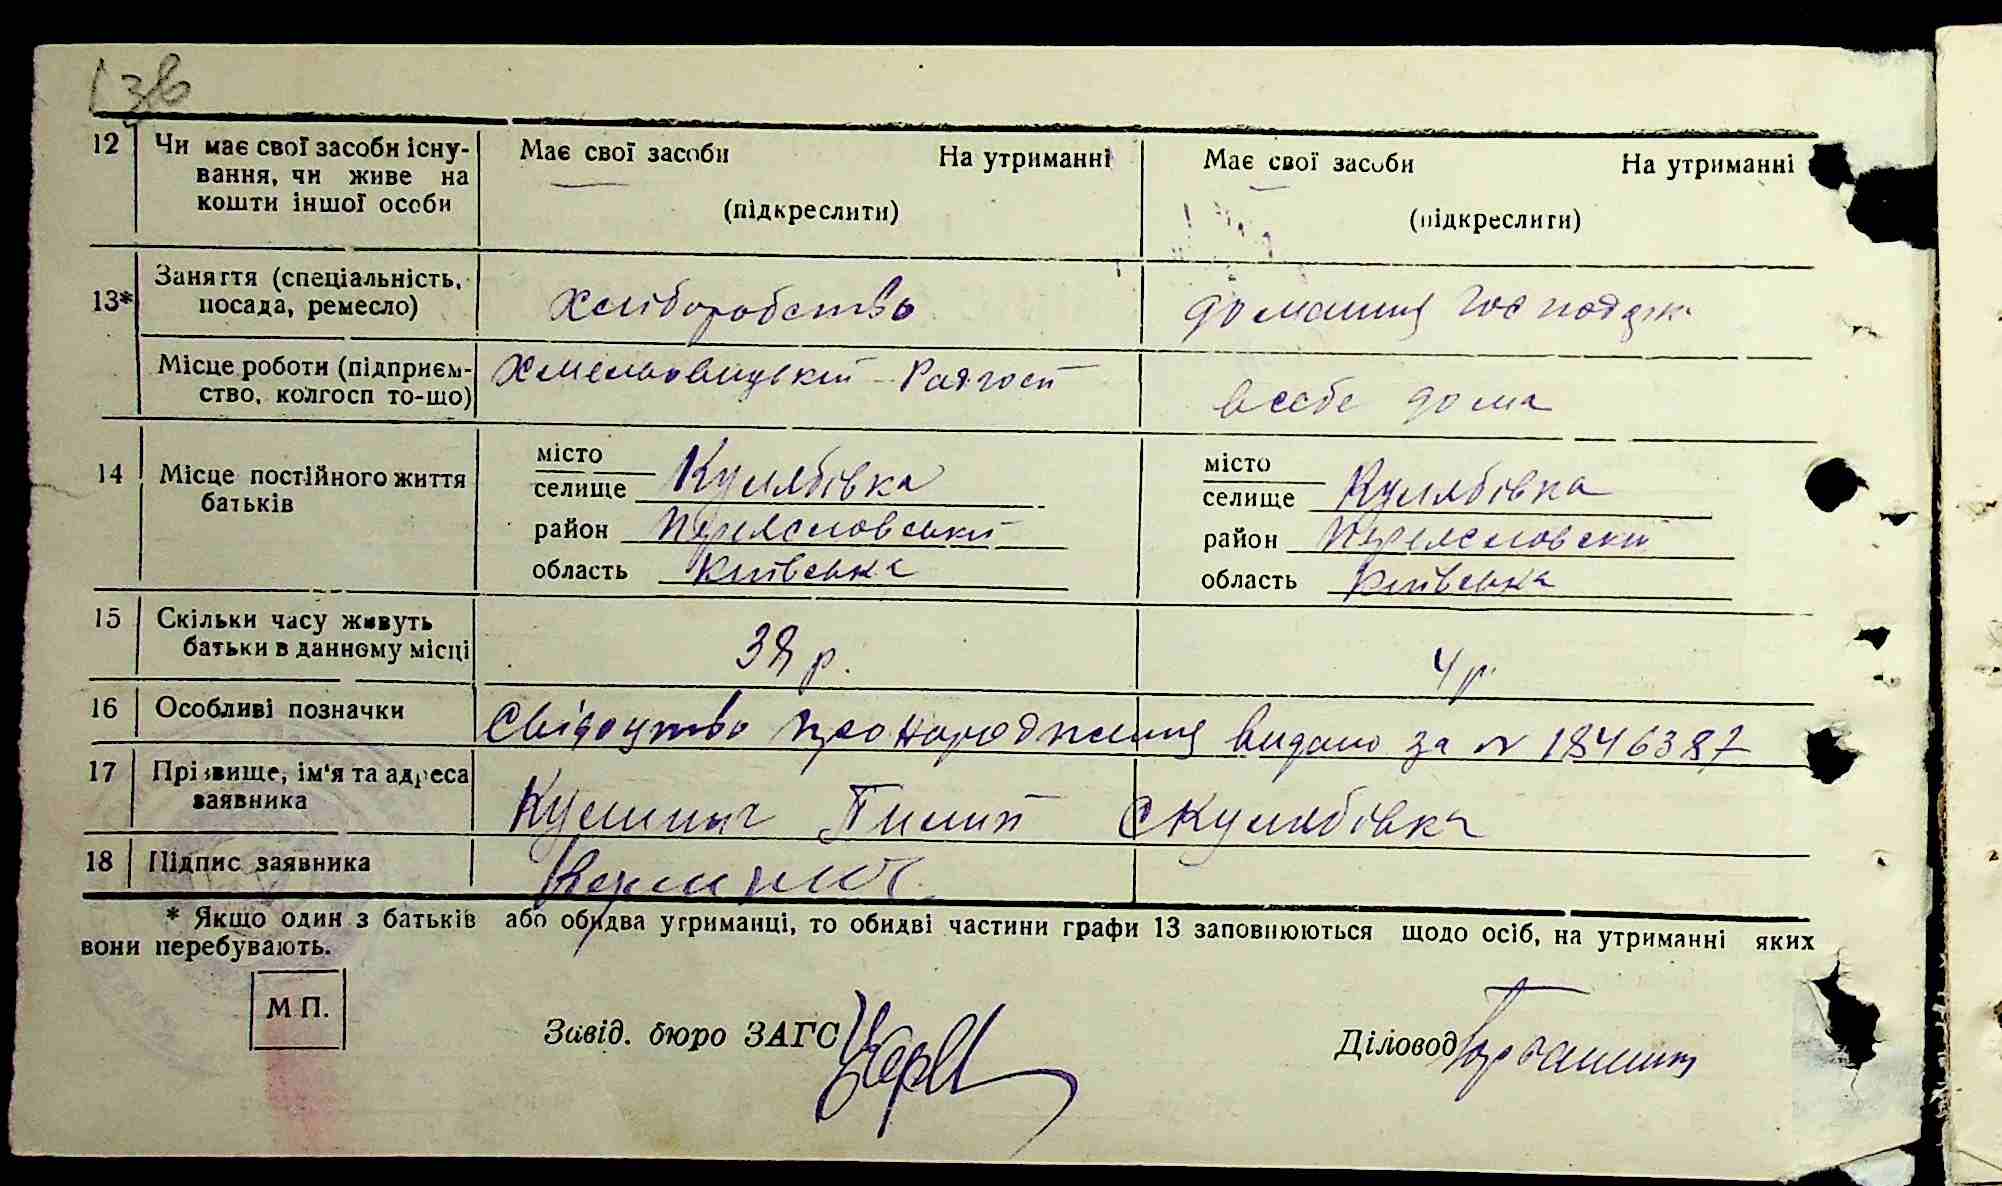 138
12 Чи має свої засоби існу- Має свої засоби На утриманні Має свої засоби На утриманні
вання, чи живе на
кошти іншої особи (підкреслити) (підкреслити)
13* Заняття (спеціальність, посада, ремесло) хліборобство домашня господарк
Місце роботи (підприєм- Радгосп
ство, колгосп то-що) в себе дома
14 Місце постійного життя місто місто
батьків селище Кулябівка селище Кулябівка
район Переясловський район Переясловский
область Київська область Київська
15 Скільки часу живуть
батьки в данному місці 38 р. 4 р.
16 Особливі позначки Свідоцтво про народження видано за № 1846387
17 Прізвище, ім'я та адреса
заявника Пилип с Кулябівка
18 Підпис заявника
* Якщо один з батьків або обидва утриманці, то обидві частини графи 13 заповнюються щодо осіб, на утриманні яких
вони перебувають.
М П.
Завід. бюро ЗАГС Діловод